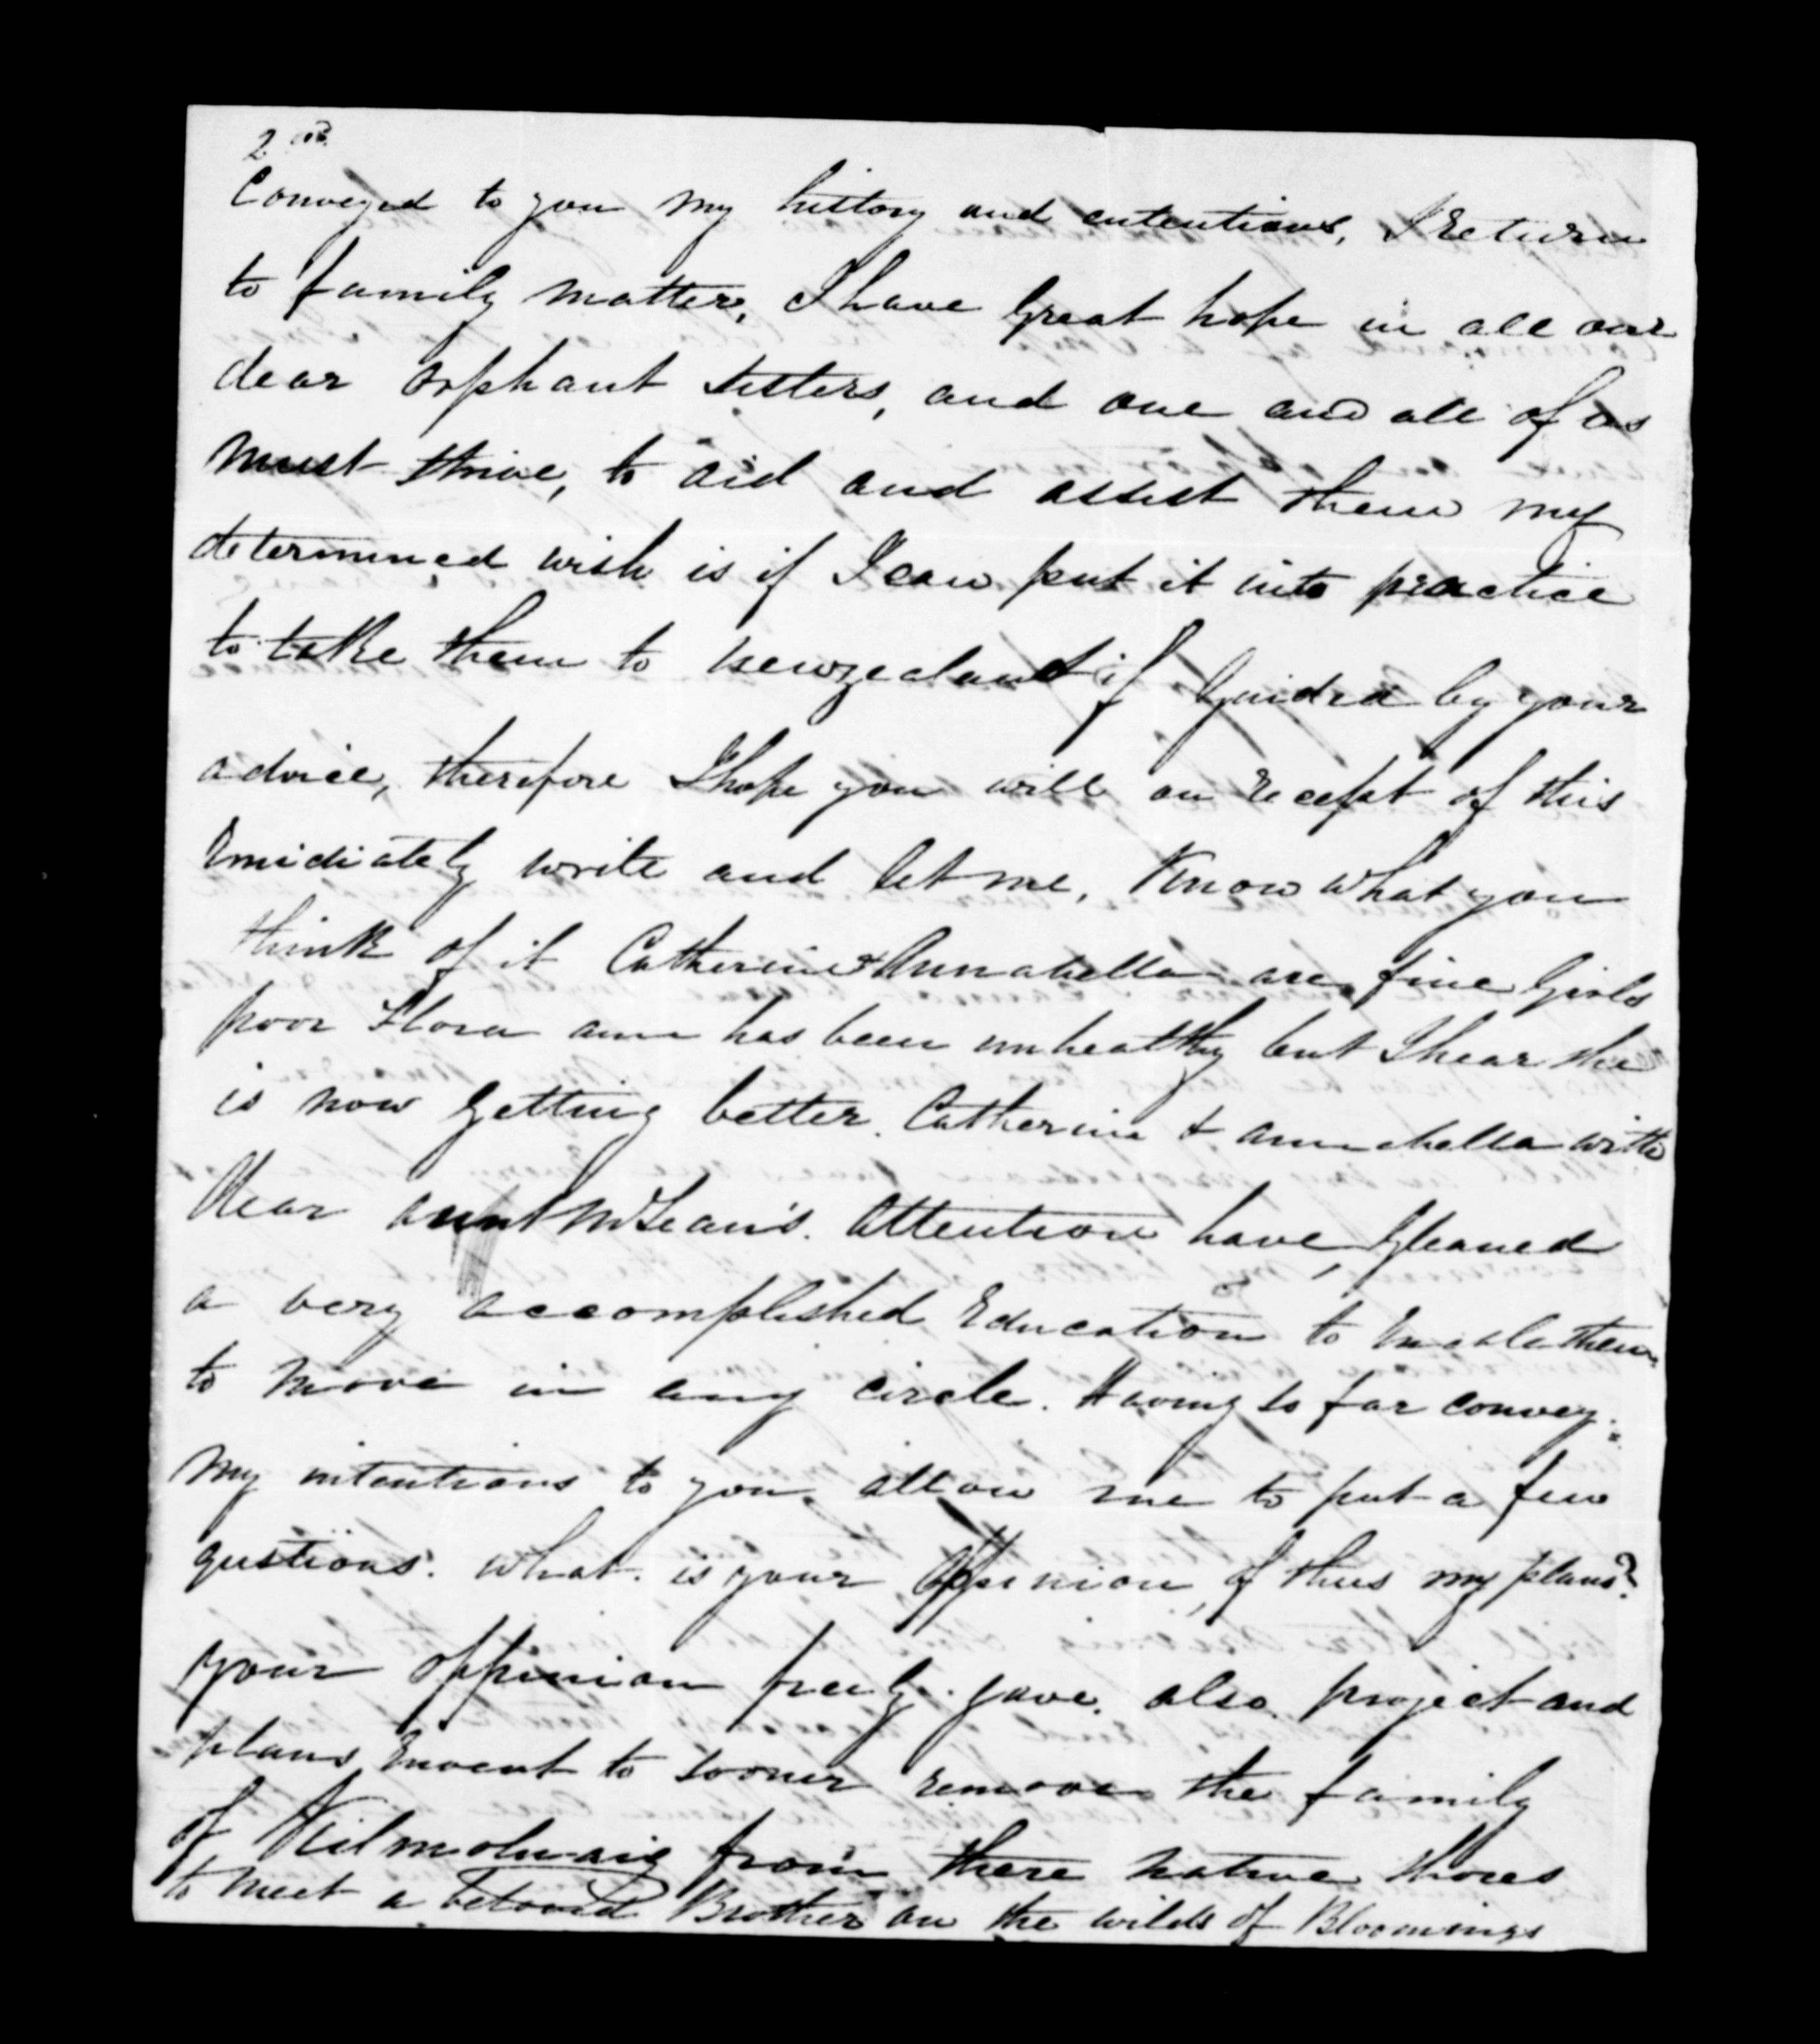 2nd
Conveyed to you my history and ententions, I return
to family matters, I have Great hope in all our
dear orphant sisters, and one and all of us
must strive, to aid and assist them my
determined wish is if I can put it into practice
to take them to newzealand if Guided by your
advice, therefore I hope you will on recept of this
Emidiately write and let me, Know what you
think of it Catherine & Annabella are fine Girls
poor Flora ann has been unhealthy but I hear she
is now Getting better. Catherine & annabella with
dear aunt McLean's. attention have, Gleaned
a very accomplished Education to them
to move in any circle. Having so far convey:
my intentions to you allow me to put a few
qustions. what. is your Oppinion, of thus my plans?
your oppinion freely. gave. also. project and
plans Envent to sooner remove the family
of Kilmoluaig from there native shores
to meet a beloved Brother on the wilds of Bloomings